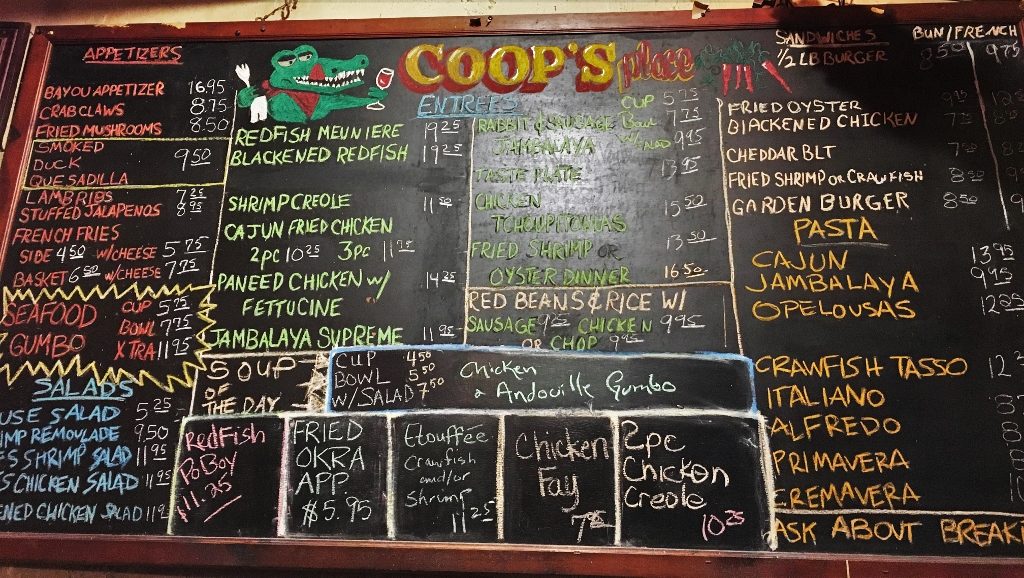 APPETIZERS
BAYOU APPETIZER 16.95
CRAB CLAWS 8.75
FRIED MUSHROOMS 8.50
SMOKED
DUCK 9.50
QUESADILLA
LAMB RIBS 7.25
STUFFED JALAPENOS 8.95
FRENCH FRIES
SIDE 4.50 W/CHEESE 5.75
BASKET 6.50 W/CHEESE 7.75
SEAFOOD CUP 5.75
GUMBO BOWL 7.75
XTRA 11.95
SALADS
USE SALAD 5.25
MP REMOULADE 9.50
S SHRIMP SALAD 11.95
S CHICKEN SALAD 11.95
ENED CHICKEN SALAD
COOP'S place
ENTREES
REDFISH MEUNIERE 19.25
BLACKENED REDFISH 19.25
SHRIMP CREOLE 11.50
CAJUN FRIED CHICKEN
2pc 10.25 3pc
PANEED CHICKEN W/ 14.25
FETTUCINE
JAMBALAYA SUPREME 11.95
CUP 5.75
RABBIT & SAUSAGE Bowl 7.75
JAMBALAYA 9.95
TASTE PLATE 13.95
CHICKEN 15.50
TCHOUPITOULAS
FRIED SHRIMP OR 13.50
OYSTER DINNER 16.50
RED BEANS & RICE W/
SAUSAGE 9.25 CHICKEN 9.95
OR CHOP 9.95
SANDWICHES BUN/FRENCH
1/2 LB BURGER 8.50 9.75
FRIED OYSTER
BLACKENED CHICKEN
CHEDDAR BLT
FRIED SHRIMP OR CRAWFISH
GARDEN BURGER 8.50
PASTA
CAJUN 13.95
JAMBALAYA 9.95
OPELOUSAS 12.25
CRAWFISH TASSO
ITALIANO
ALFREDO
PRIMAVERA
CREMAVERA
ASK ABOUT BREAK
SOUP
OF
THE DAY
CUP 4.50
BOWL 5.50
W/SALAD 7.50
Chicken
& Andouille Gumbo
RedFish
Po Boy
11.25
FRIED
OKRA
APP.
$5.95
Etouffée
Crawfish
and/or
Shrimp
11.25
Chicken
Fay
2pc
Chicken
Creole
10.25